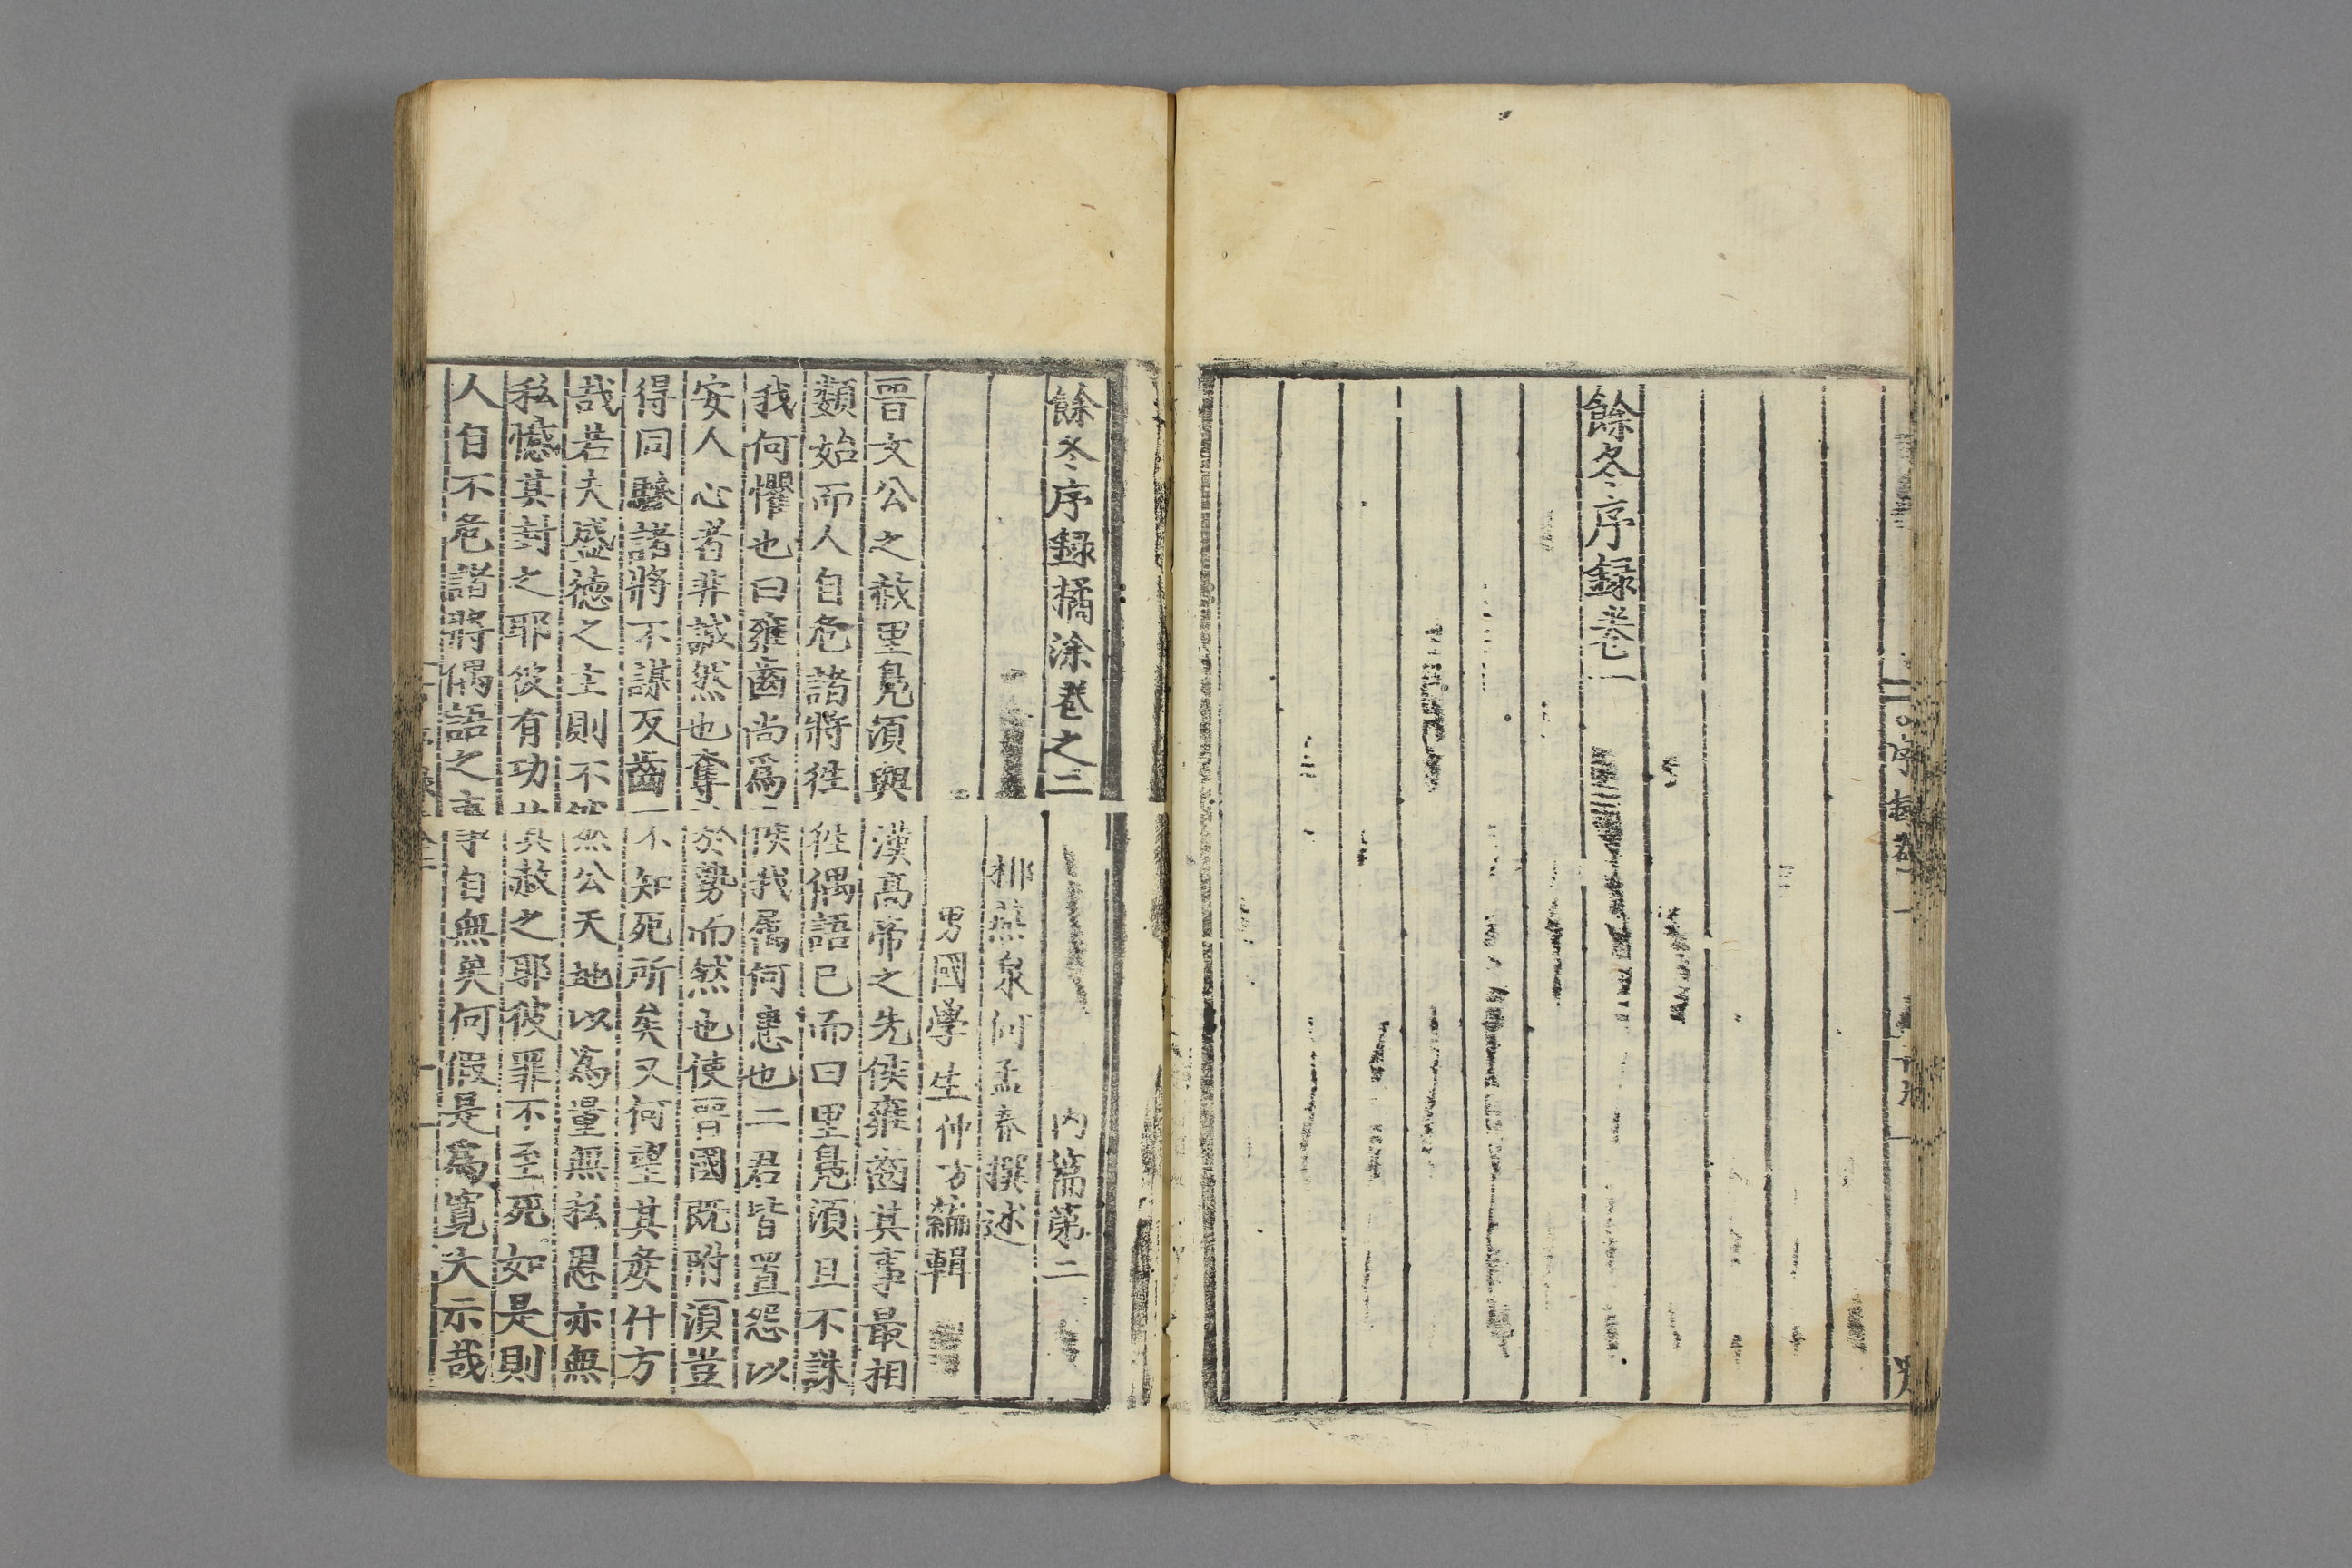 餘冬序録卷一
餘冬序録摘涂卷之二　内篇第二
郴燕泉何孟春撰述
男國學生仲方編輯
晋文公之赦里鳧湏與漢高帝之先侯雍齒其事最相
類始而人自危諸將徃徃偶語已而曰里鳧湏且不誅
我何懼也曰雍齒尚爲侯我属何患也二君皆置怨以
安人心者非誠然也奪於勢而然也使晋國既附湏豈
得同驂諸將不謀反齒不知死所矣又何望其矦什方
哉若夫盛德之主則不然公天地以爲量無私恩亦無
私憾其封之耶彼有功其赦之耶彼罪不至死如是則
人自不危諸將偶語之事自無矣何假是爲寬大示哉